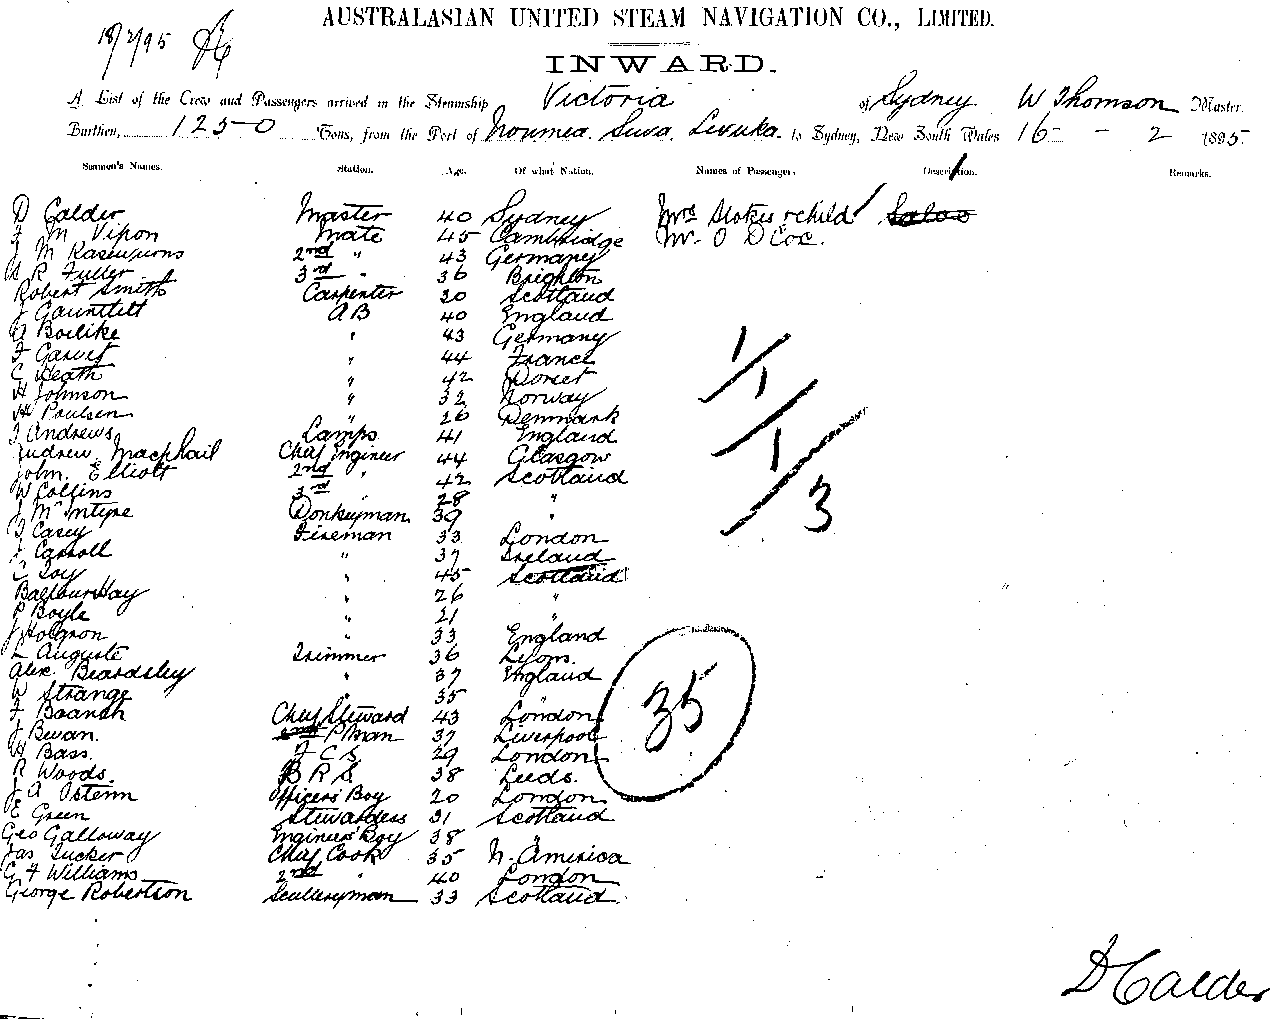 AUSTRALASIAN UNITED STEAM NAVIGATION CO., LIMITED.
18/2/95
INWARD.
A List of the Crew and Passengers arrived in the Steamship Victoria of Sydney W Thomson Master.
Burthen, 1250 Tons, from the Port of Noumea. Suva. Levuka. to Sydney, New South Wales 16 - 2 1895
Seamen's Names. Station. Age. Of what Nation. Names of Passengers Description. Remarks.
D Calder Master 40 Sydney Mrs Stokes & child Saloo
J M Vipon Mate 45 Cambridge Mr. O D Coe.
J M 2nd " 43 Germany
R Fuller 3rd " 36 Brighton
Robert Smith Carpenter 20 Scotland
J Gauntlett AB 40 England
Boilike " 43 Germany
" 44 France
C Heath " 42 Dorset
H Johnson " 32 Norway
H Poulsen " 26 Denmark
J Andrews Lamps 41 England
Andrew MacPhail Chief Engineer 44 Glasgow
John Elliott 2nd " 42 Scotland
W Collins 3rd " 28 "
J McIntyre Donkeyman 39 "
J Casey Fireman 33 London
J Carroll " 37 Ireland
C " 45 Scotland
Balfour Hay " 26 "
P Boyle " 21 "
J Holgron " 33 England
L Auguste Trimmer 36 Lyons.
Alex. Beardsley " 37 England
W Strange 35 "
F Branch Chief Steward 43 London
J Bwan. 2nd P Man 37 Liverpool
H Bass. F C S 29 London
R Woods. B R S 38 Leeds.
J A Ostenn Officers' Boy 20 London
E Green Stewardess 31 Scotland
Geo Galloway Engineers' Boy 38 "
Jas Tucker Chief Cook 35 N. America
G F Williams 2nd " 40 London
George Robertson Sculleryman 33 Scotland
1/1/3
35
D Calder